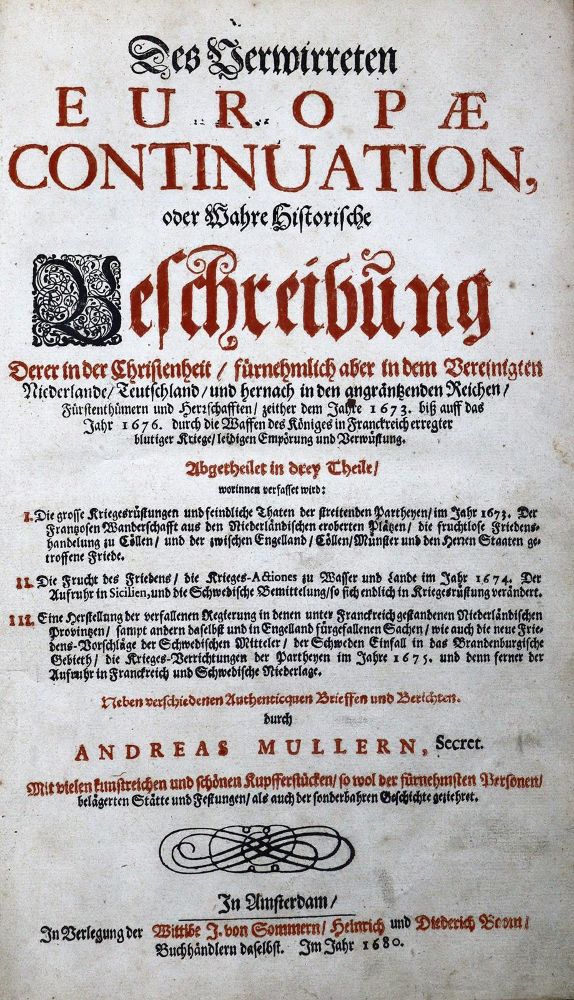 Des Verwirreten
EUROPÆ
CONTINUATION,
oder Wahre Historische
Beschreibũng
Derer in der Christenheit / fürnehmlich aber in dem Vereinigten
Niederlande / Teutschland / und hernach in den angräntzenden Reichen /
Fürstenthümern und Herzschafften / zeither dem Jahre 1673. biß auff das
Jahr 1676. durch die Waffen des Königes in Franckreich erregter
blutiger Kriege / leidigen Empörung und Verwüstung.
Abgetheilet in drey Theile /
worinnen verfasset wird:
I. Die grosse Kriegesrüstungen und feindliche Thaten der streitenden Partheyen / im Jahr 1673. Der
Frantzosen Wanderschafft aus den Niederländischen eroberten Plätzen / die fruchtlose Friedens-
handelung zu Cöllen / und der zwischen Engelland / Cöllen / Münster und den Herren Staaten ge-
troffene Friede.
II. Die Frucht des Friedens / die Krieges-Actiones zu Wasser und Lande im Jahr 1674. Der
Aufruhr in Sicilien, und die Schwedische Bemittelung / so sich endlich in Kriegesrüstung verändert.
III. Eine Herstellung der verfallenen Regierung in denen unter Franckreich gestandenen Niederländischen
Provintzen / sampt andern daselbst und in Engelland fürgefallenen Sachen / wie auch die neue Frie-
dens-Vorschläge der Schwedischen Mitteler / der Schweden Einfall in das Brandenburgische
Gebieth / die Krieges-Verrichtungen der Partheyen im Jahre 1675. und denn ferner der
Aufruhr in Franckreich und Schwedische Niederlage.
Neben verschiedenen Authenticquen Brieffen und Berichten.
durch
ANDREAS MULLERN, Secret.
Mit vielen kunstreichen und schönen Kupfferstücken / so wol der fürnehmsten Personen /
belägerten Stätte und Festungen / als auch der sonderbahren Geschichte geziehret.
In Amsterdam /
In Verlegung der Wittibe J. von Sommern / Heinrich und Diederich Boom /
Buchhändlern daselbst. Im Jahr 1680.